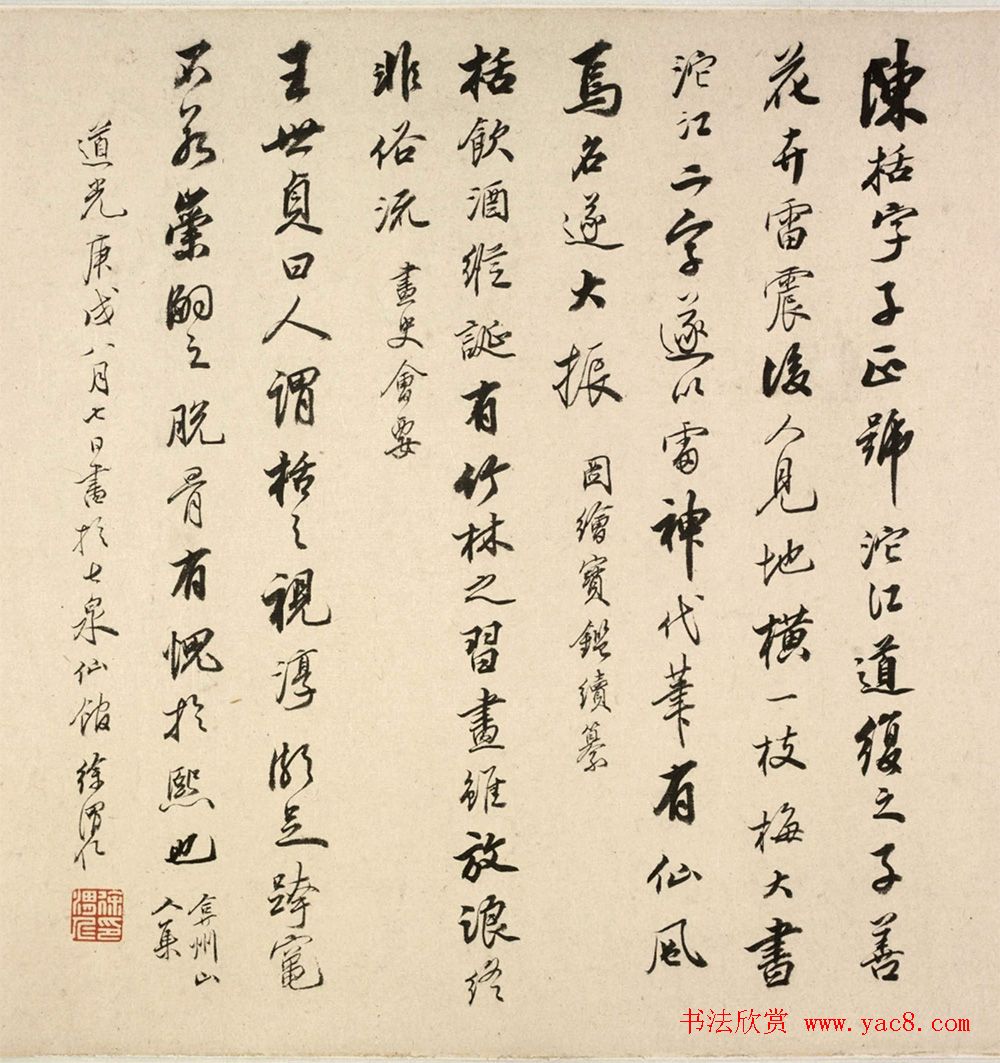 陳栝字子正號沱江道復之子善
花卉雷震後人見地橫一枝梅大書
沱江二字遂以雷神代筆有仙風
焉名遂大振 圖繪寶鑑續纂
栝飲酒縱誕有竹林之習畫雖放浪終
非俗流 畫史會要
王世貞曰人謂栝之視淳頗足跨竈
不若蒙嗣之脫骨有愧於熙也 弇州山人集
道光庚戌八月七日書於七泉仙館徐渭仁
徐渭仁印
书法欣赏 www.yac8.com